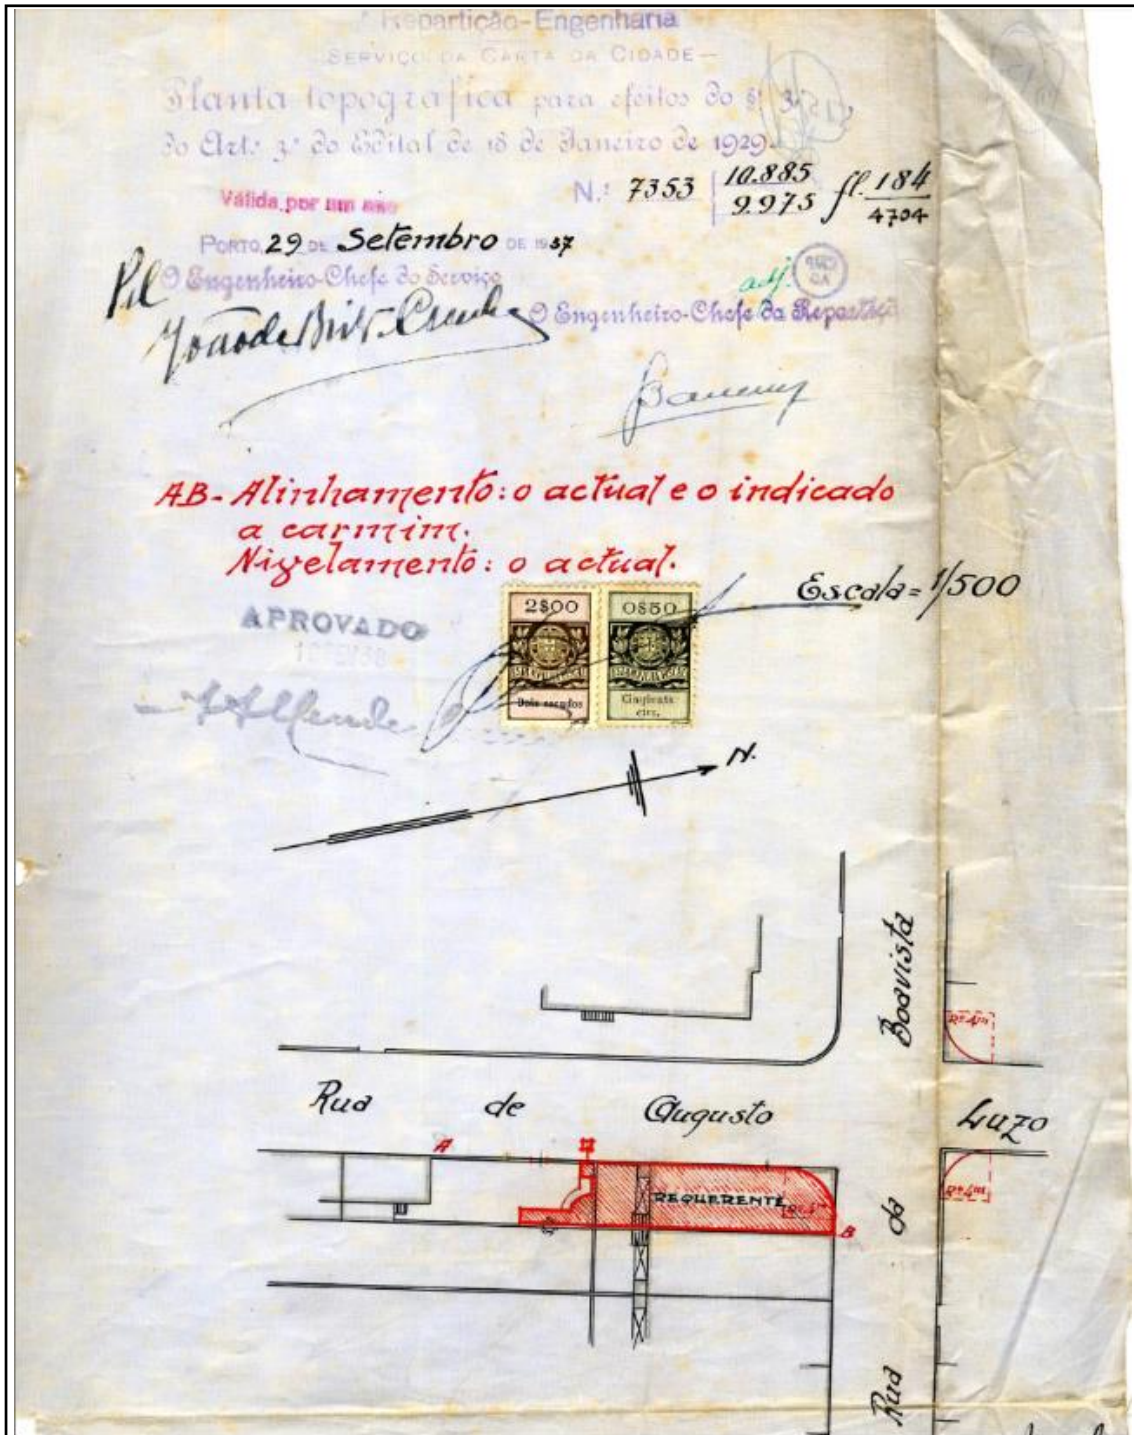 Repartição-Engenharia
SERVIÇO DA CARTA DA CIDADE-
Planta topografica para efeitos do §
do Art.º 3º do Edital de 18 de Janeiro de 1929.
Válida por um ano
N.º 7353 10.885 fl. 184
9.975 4704
PORTO, 29 DE Setembro DE 1937
Pel
O Engenheiro-Chefe do Serviço
adj.
O Engenheiro-Chefe da Repartição
AB- Alinhamento: o actual e o indicado
a carmim.
Nivelamento: o actual.
Escala = 1/500
2$00 0$50
APROVADO
Dois escudos Cinqüenta
ctvs.
N.
Boavista
R=4m
Rua de Augusto Luzo
A
REQUERENTE
R=4m
B
da
Rua